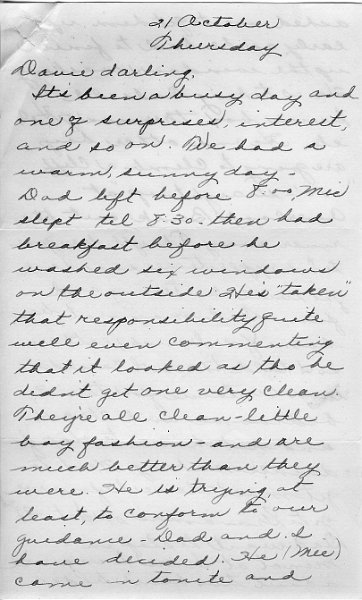 21 October
Thursday
Davie darling,
Its been a busy day and
one of surprises, interest,
and so on. We had a
warm, sunny day -
Dad left before 8:00, Mic
slept til 8:30. then had
breakfast before he
washed six windows
on the outside. He's "taken"
that responsibility quite
well even commenting
that it looked as tho he
didn't get one very clean.
They're all clean - little
boy fashion - and are
much better than they
were. He is trying, at
least, to conform to our
guidance - Dad and I
have decided. He (Mic)
came in tonite and